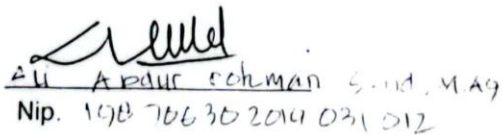 Ali Abdur rohman S.ud, M.Ag
Nip. 19870630 2019 031 012